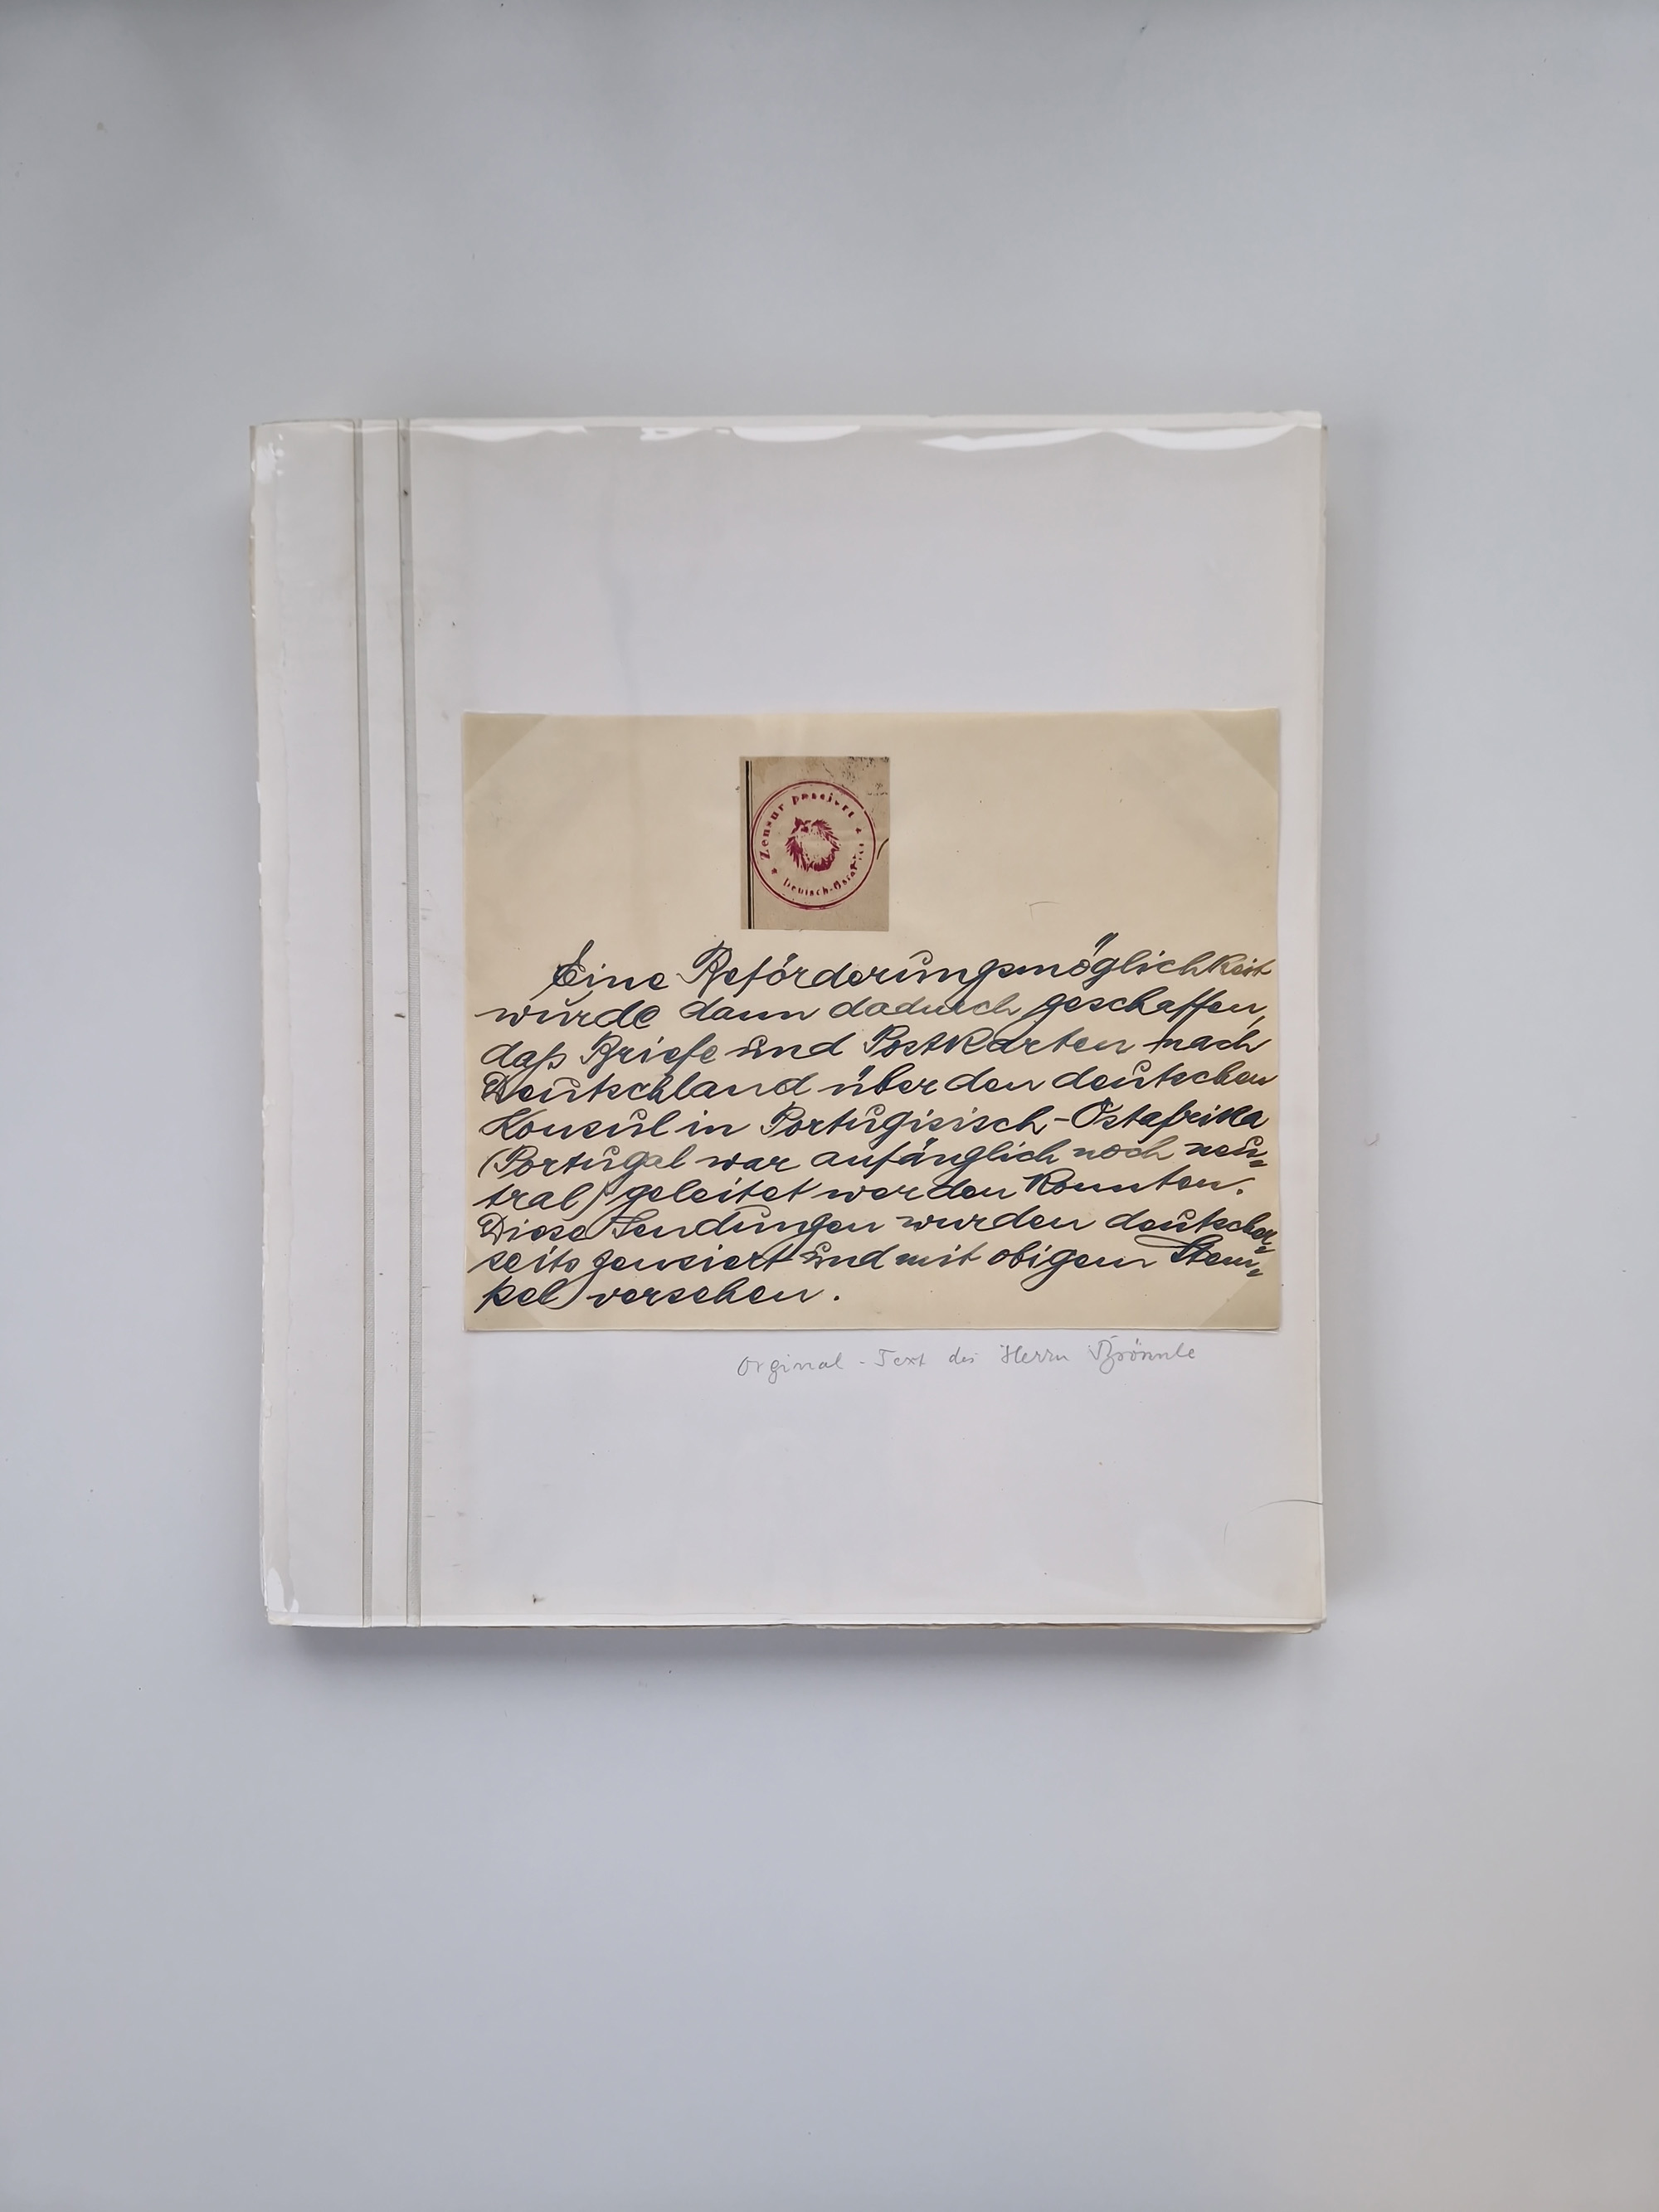 Zensur passiert
Deutsch-Ostafrika
Eine Beförderungsmöglichkeit
wurde dann dadurch geschaffen,
daß Briefe und Postkarten nach
Deutschland über den deutschen
Konsul in Portugisisch-Ostafrika
(Portugal war anfänglich noch neu=
tral) geleitet werden konnten.
Diese Sendungen wurden deutscher=
seits zensiert und mit obigem Stem=
pel versehen.
Orginal - Text des Herrn